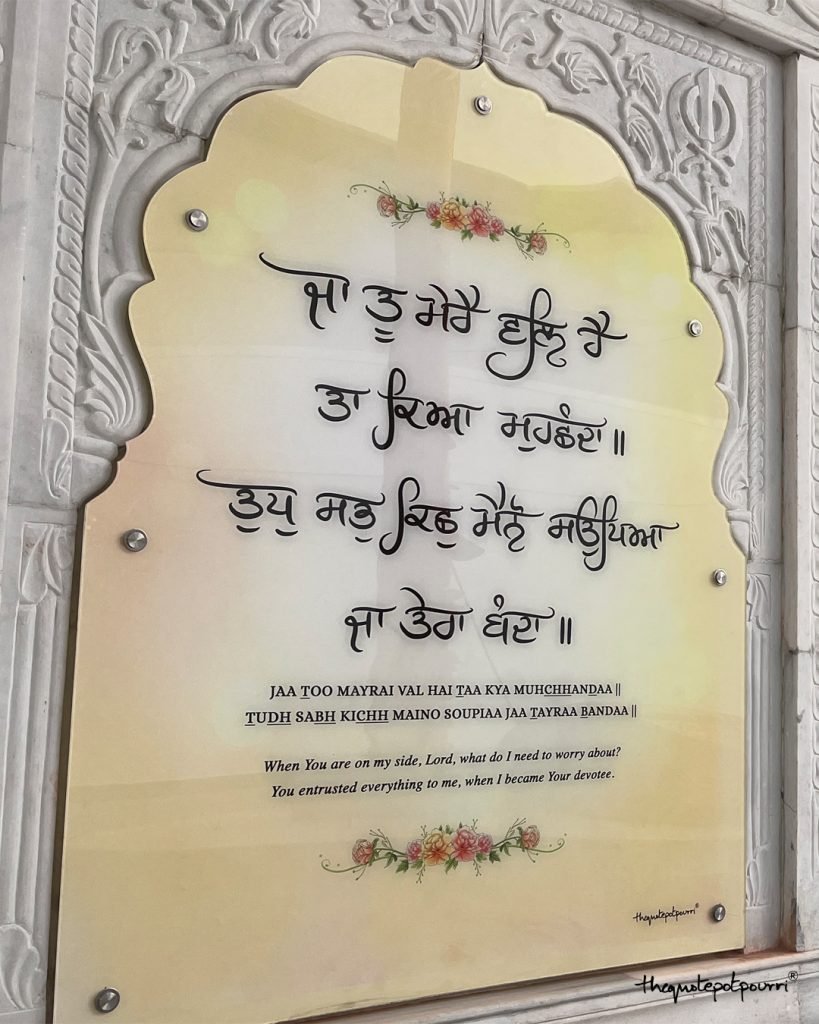 ਜਾ ਤੂ ਮੇਰੈ ਵਲਿ ਹੈ
ਤਾ ਕਿਆ ਮੁਹਛੰਦਾ ॥
ਤੁਧੁ ਸਭੁ ਕਿਛੁ ਮੈਨੋ ਸਉਪਿਆ
ਜਾ ਤੇਰਾ ਬੰਦਾ ॥
JAA TOO MAYRAI VAL HAI TAA KYA MUHCHHANDAA ||
TUDH SABH KICHH MAINO SOUPIAA JAA TAYRAA BANDAA ||
When You are on my side, Lord, what do I need to worry about?
You entrusted everything to me, when I became Your devotee.
thequotepotpourri®
thequotepotpourri®